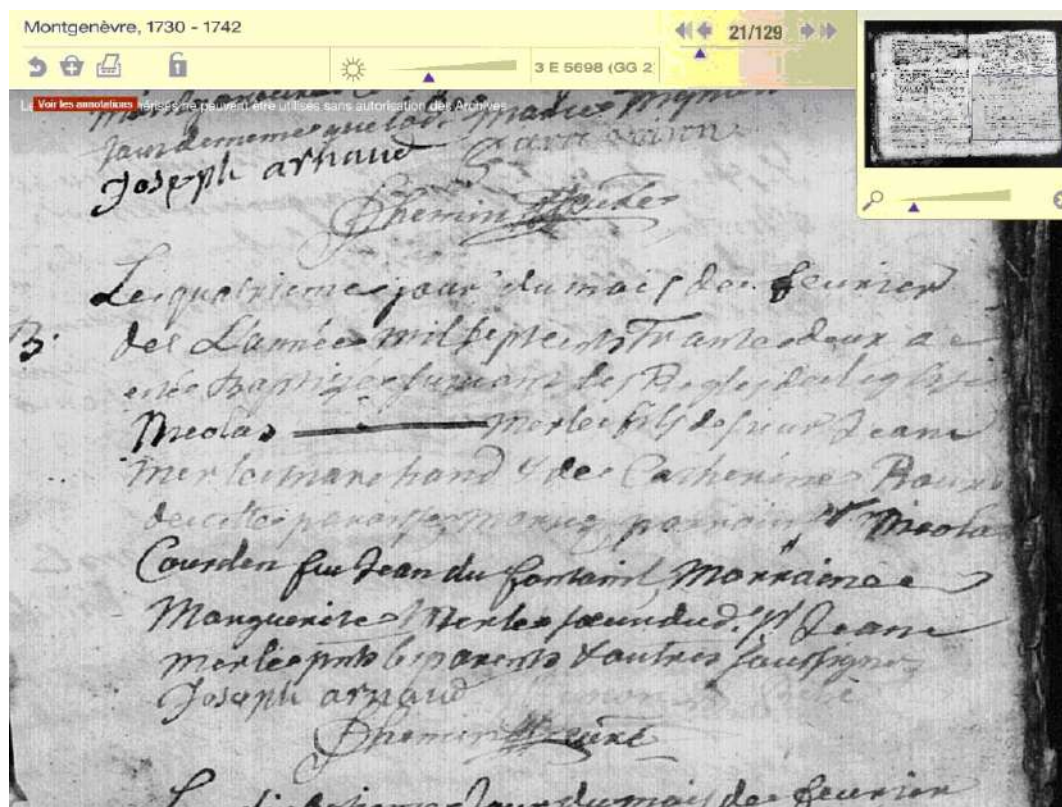 Montgenèvre, 1730 - 1742
21/129
3 E 5698 (GG 2
Voir les annotations
ne peuvent être utilisés sans autorisation des Archives
Joseph arnaud
Dhemin Curé
Le quatrieme jour du mois de feurier
B.
de L'année mil sept cents Trante deux a
esté Baptize suivant les Regles de leglise
Nicolas Merle fils de sieur Jean
Merle marchand & de Catherine Roux
de cette paroisse parrain Sr Nicolas
Courden feu Jean du fontanil, Marraine
Marguerite Merle soeur dud. Sr Jean
Merle pnts les parents & autres soussignes
Joseph arnaud
Dhemin Curé
jour du mois de feurier